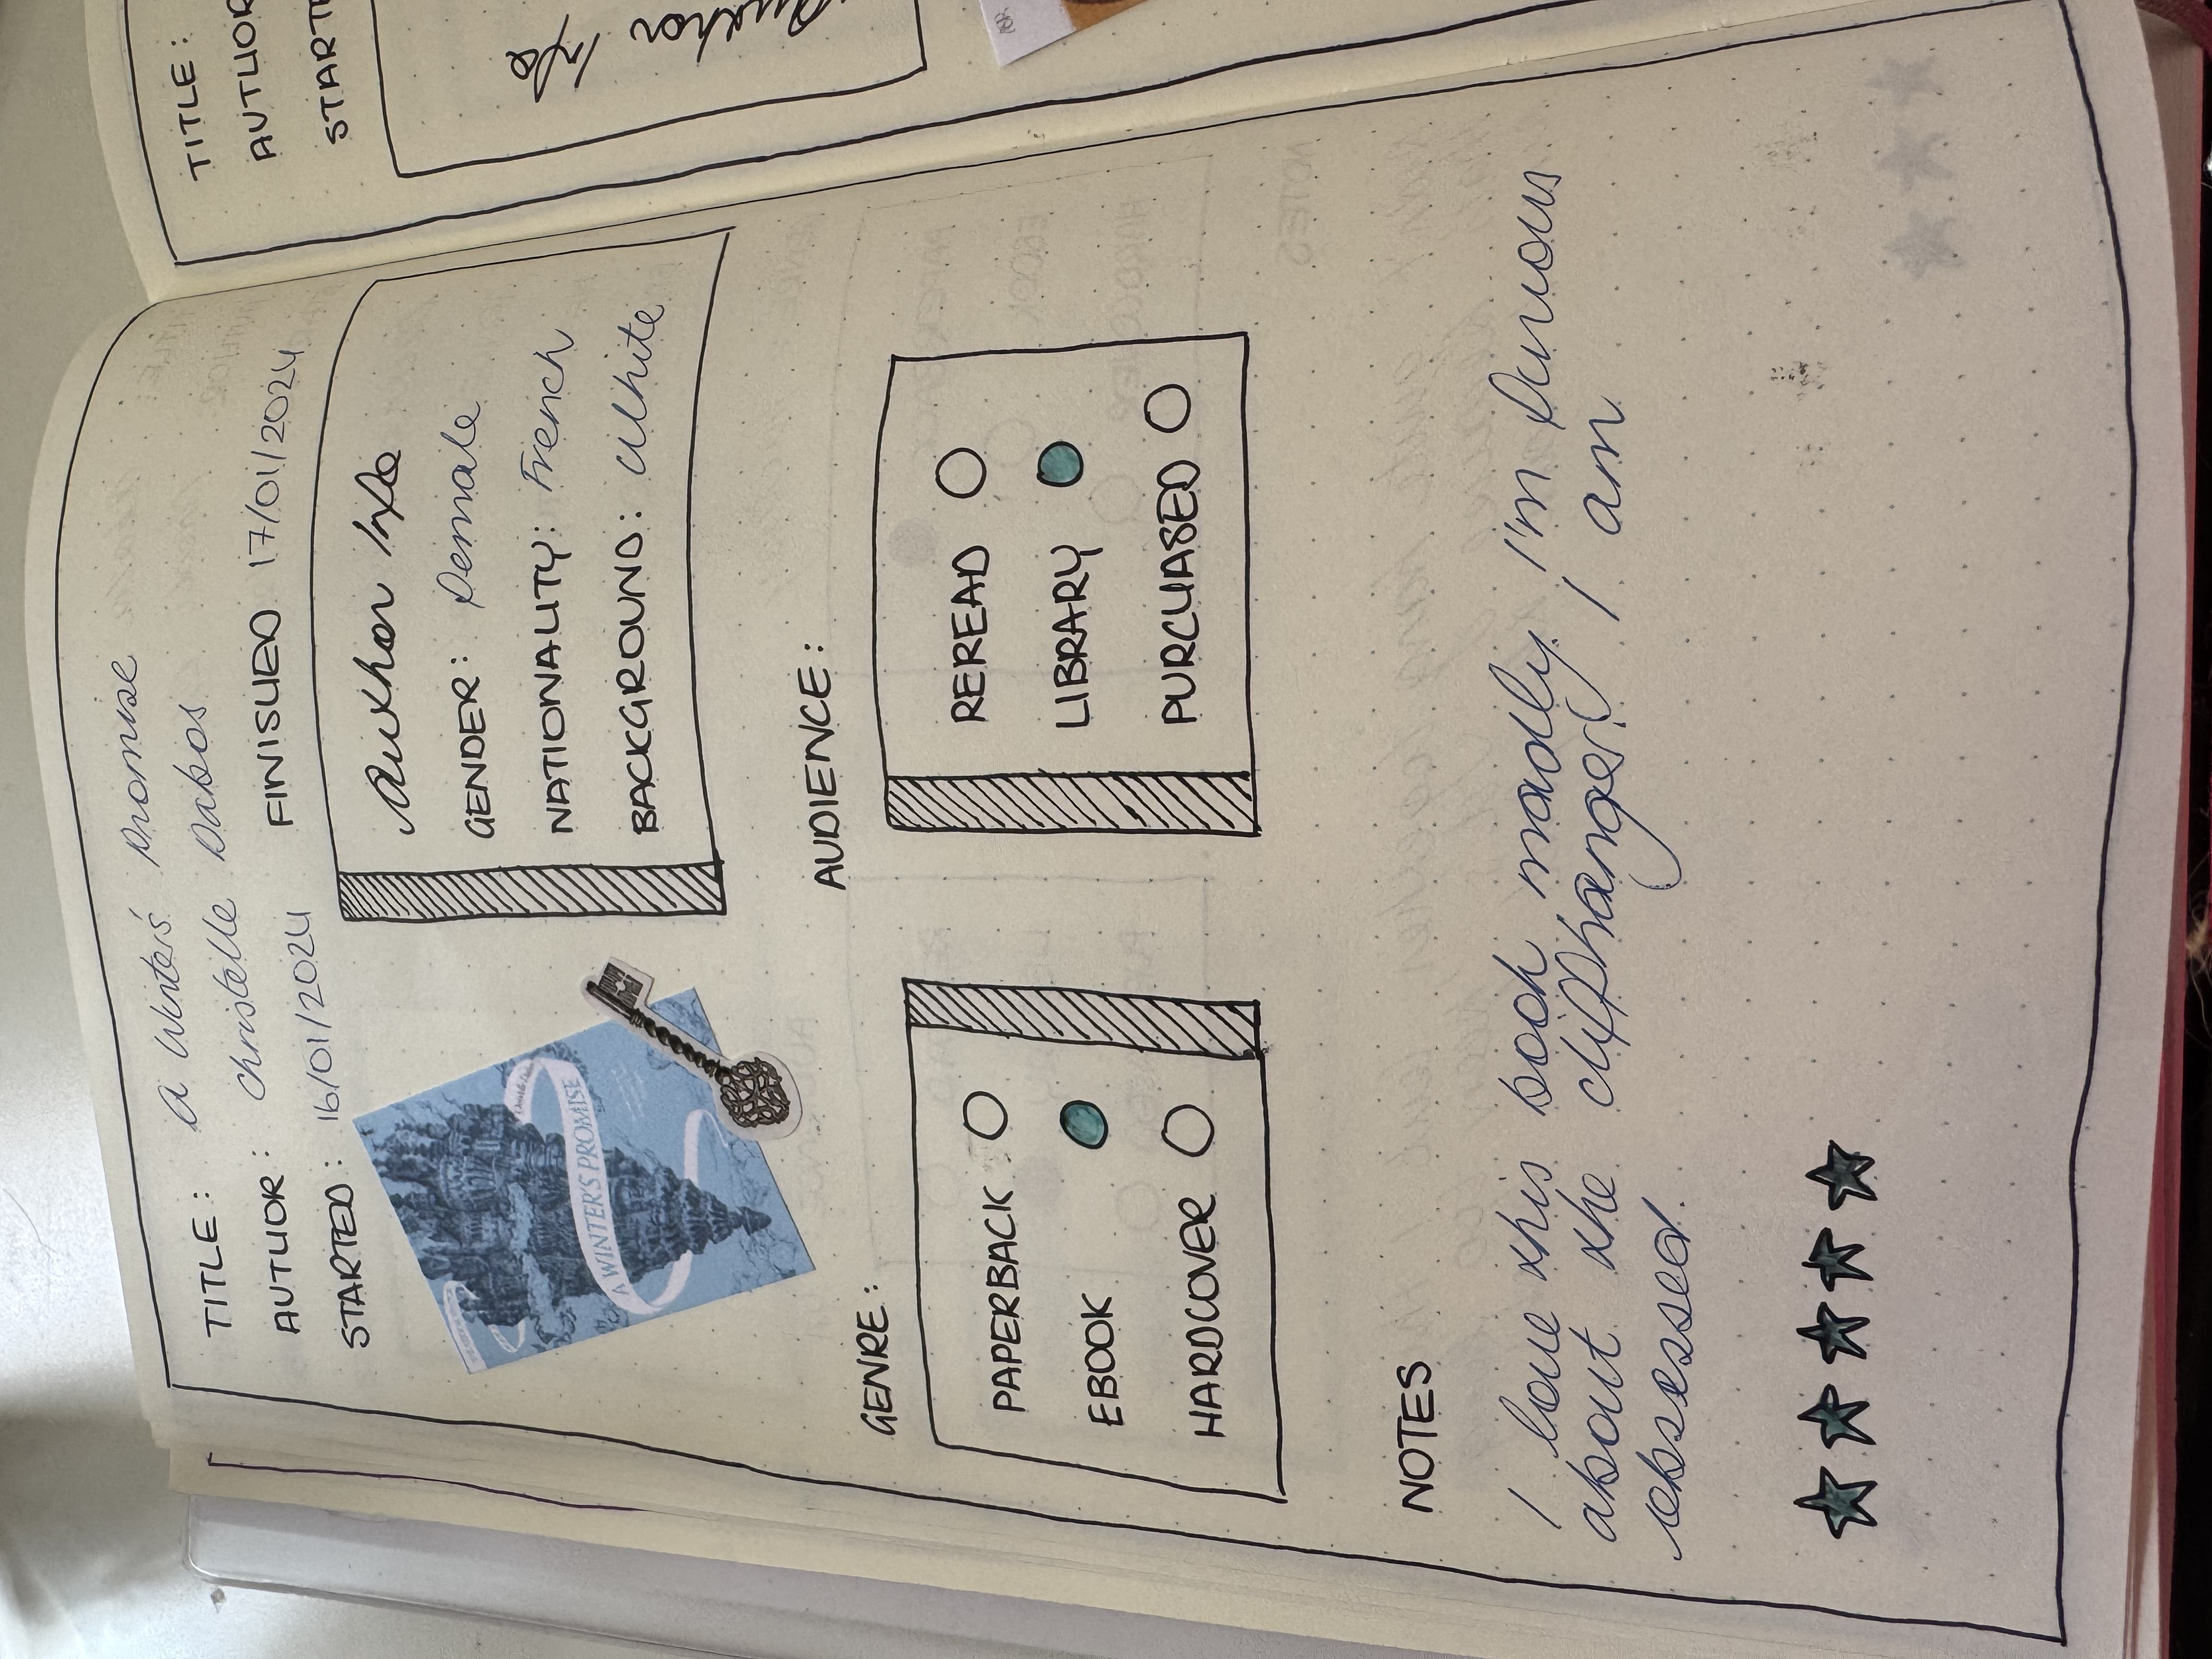 TITLE: A Winters' Promise
AUTHOR: Christelle Dabos
STARTED: 16/01/2024 FINISHED 17/01/2024
A WINTER'S PROMISE
Author Info
GENDER: Female
NATIONALITY: French
BACKGROUND: White
GENRE:
PAPERBACK
EBOOK
HARDCOVER
AUDIENCE:
REREAD
LIBRARY
PURCHASED
NOTES
I love this book madly. I'm furious
about the cliffhanger! I am
obsessed.
TITLE:
AUTHOR
START
Author